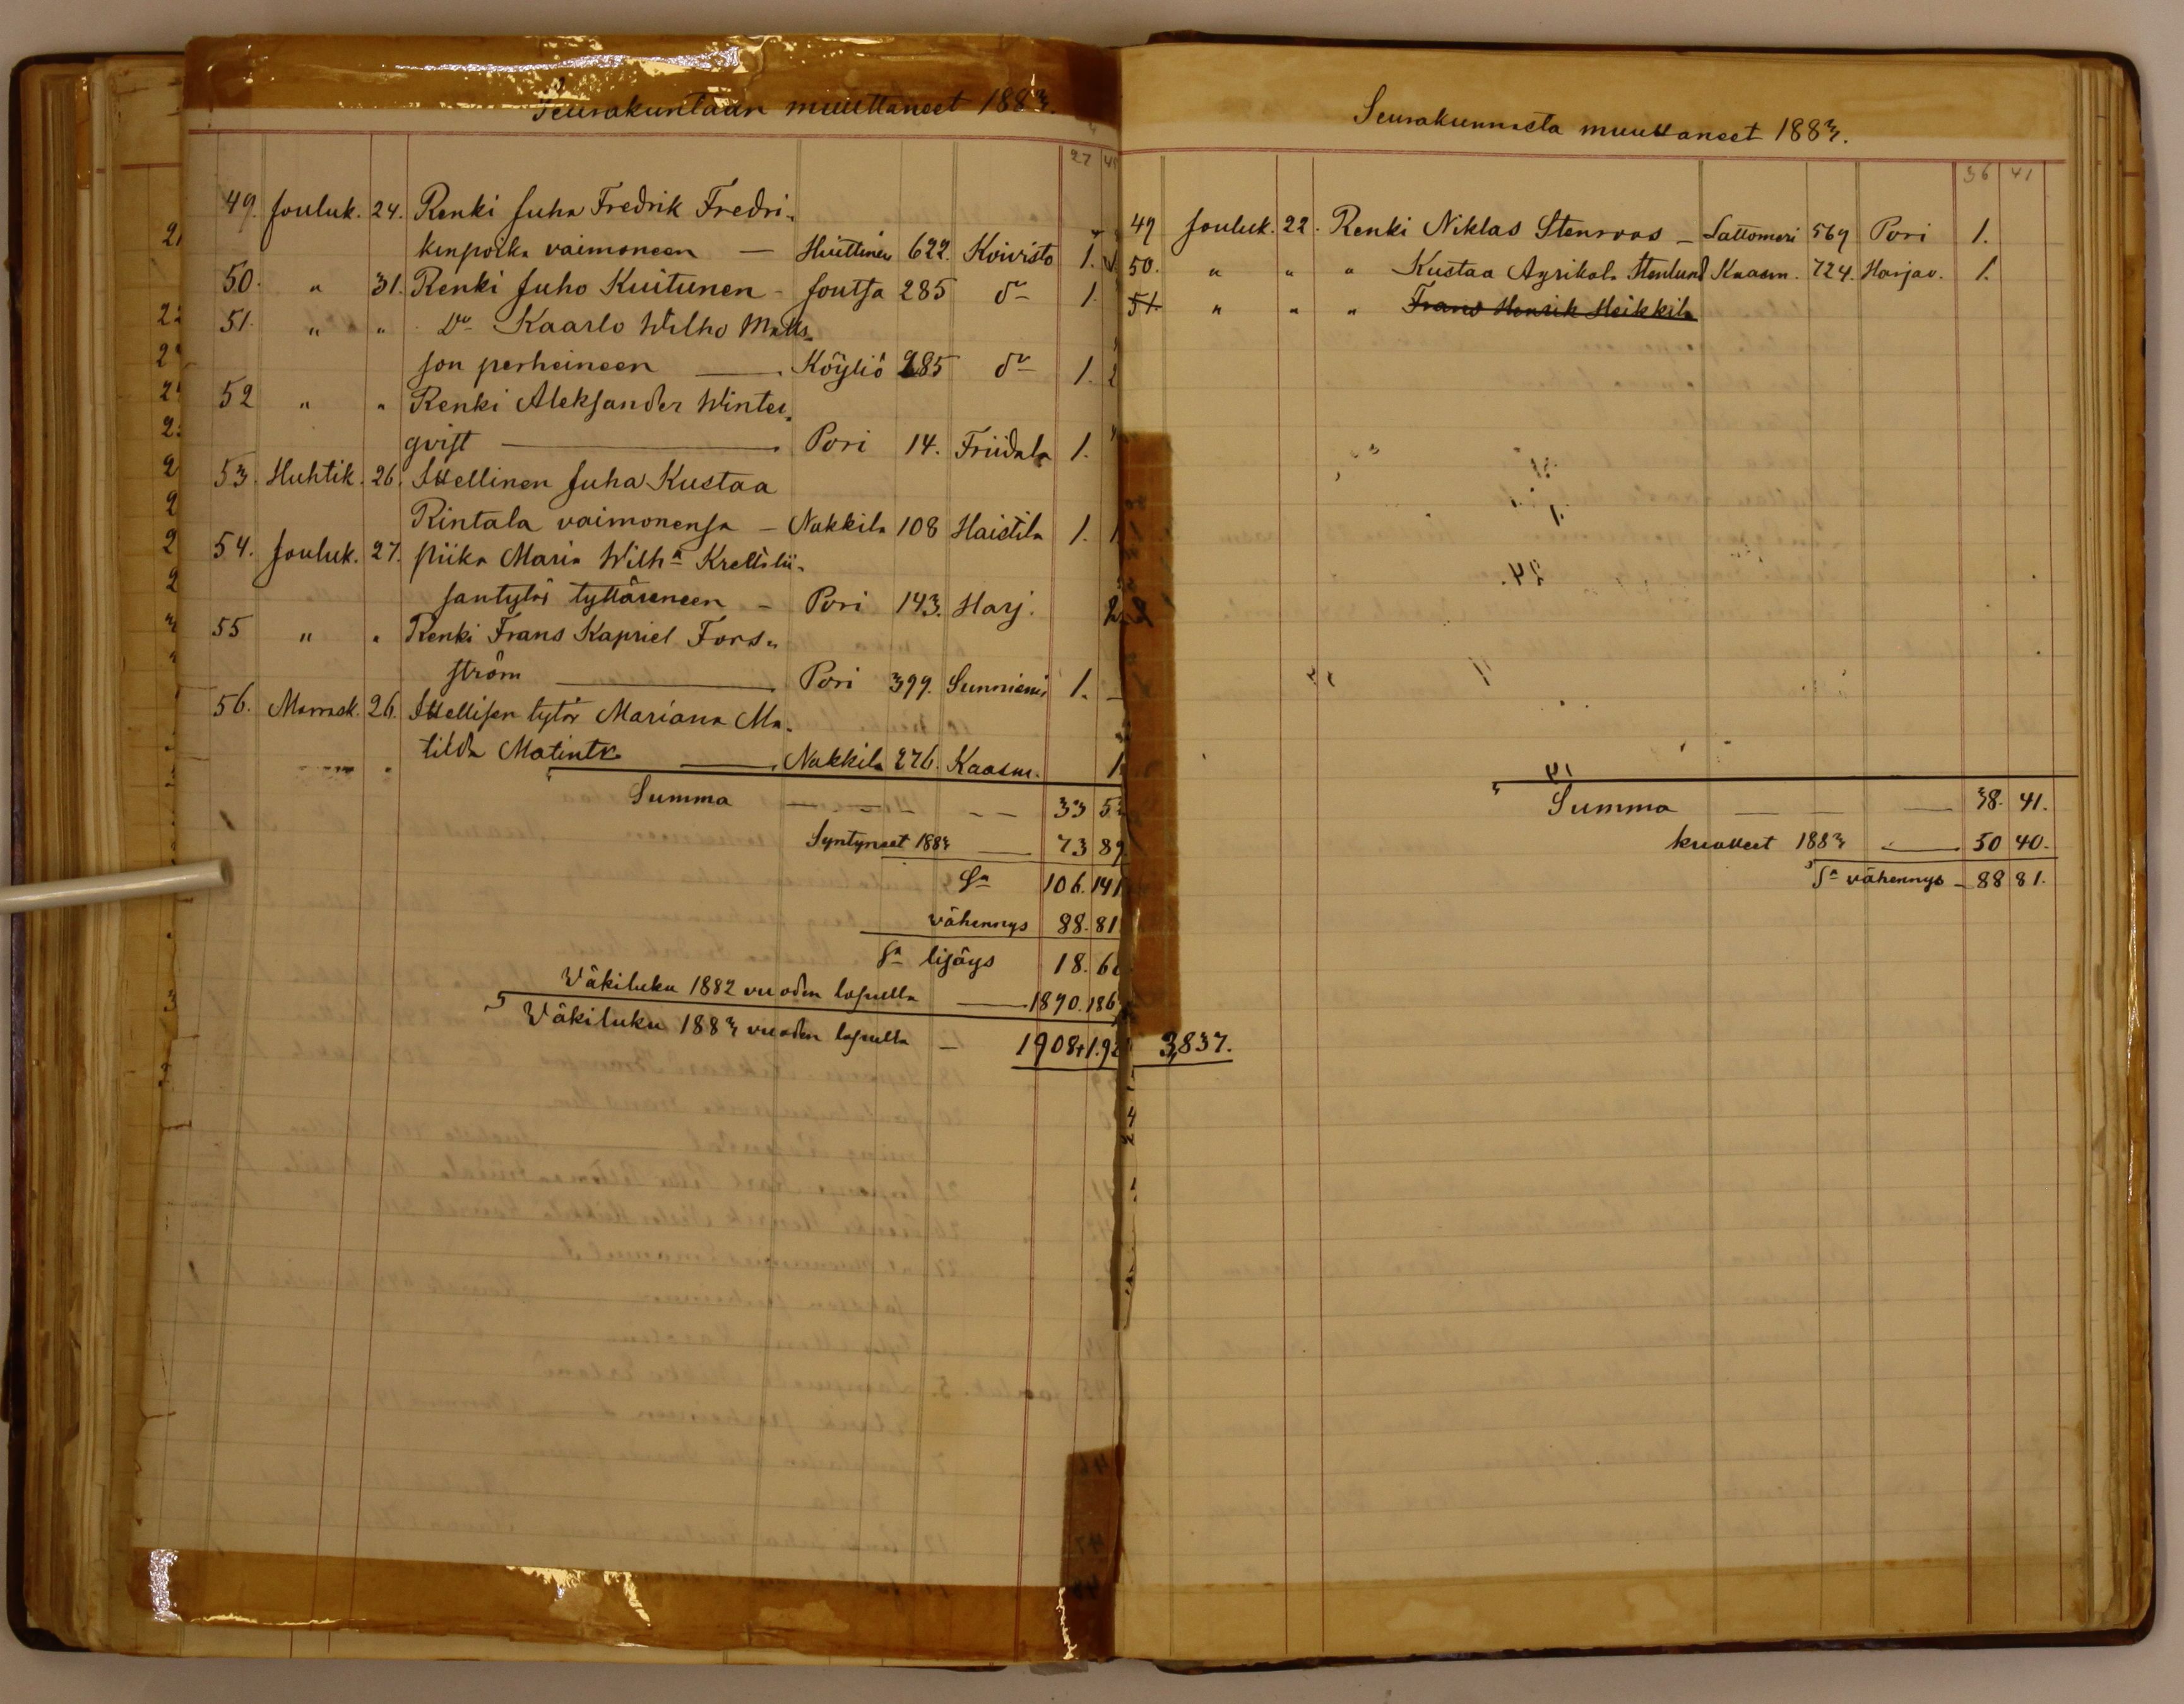 Seurakuntaan muuttaneet 1883.
27
49. Jouluk. 24. Renki Juha Fredrik Fredri-
kinpoika vaimoneen — Huittinen 622. Koivisto 1.
50. " 31. Renki Juho Kuitunen - Joutsa 285 do 1.
51. " " Do Kaarlo Wilho Matts-
son perheineen — Köyliö 285 do 1. 2
52 " " Renki Aleksander Winter-
qvist — Pori 14. Friidala 1.
53. Huhtik. 26. Itsellinen Juha Kustaa
Rintala vaimonensa — Nakkila 108 Haistila 1. 1
54. Jouluk. 27. Piika Maria Wilha
tyttärineen — Pori 143. Harj. 2
55 " " Renki Frans Kapriel Fors-
ström — Pori 399. Sunniemi 1. —
56. Marrask. 26. Itsellisen tytör Mariana Ma-
tilda Matintr — Nakkila 276. Kaasm. 1.
Summa — — — — 33
Syntyneet 1883 — 73 89
Sa 106. 141
vähennys 88. 81
Sa lisäys 18. 60
Väkiluku 1882 vuoden lopulla — 1890.
Väkiluku 1883 vuoden lopulla — 1908+
3,837.
Seurakunnasta muuttaneet 1883.
36 41
49 Jouluk. 22. Renki Niklas Stenroos — Lattomeri 569 Pori 1.
50. " " " Kustaa Agrikola Stenlund Kaasm. 724. Harjav. 1.
51. " " " Frans Henrik Heikkilä
Summa — — — 38. 41.
kuolleet 1883 — 50 40.
Sa vähennys — 88 81.